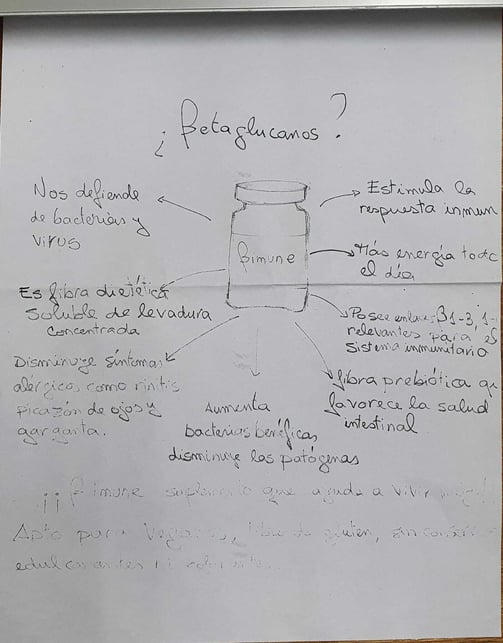 ¿Betaglucanos?
Nos defiende
de bacterias y
virus
Estimula la
respuesta inmun
βimune
Más energía todo
el día
Es fibra dietética
soluble de levadura
concentrada
Posee enlaces β1-3, 1-
relevantes para el
sistema inmunitario
Disminuye síntomas
alérgicos como rinitis
picazón de ojos y
garganta.
Aumenta
bacterias benéficas
disminuye las patógenas
fibra prebiótica qu
favorece la salud
intestinal
¡¡βimune suplemento que ayuda a vivir
Apto para Veganos, libre de gluten, sin
edulcorantes ni colorantes.